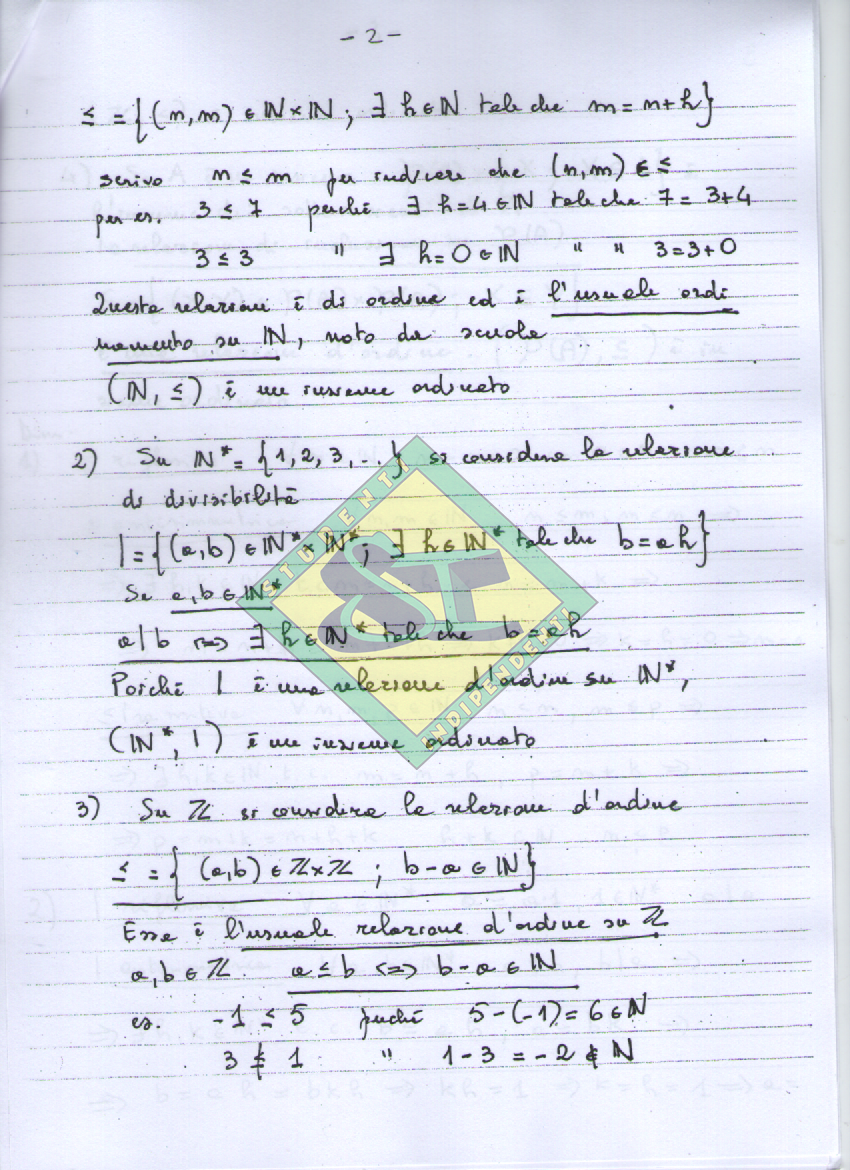 - 2 -
≤ = {(n,m) ∈ ℕ×ℕ ; ∃ h∈ℕ tale che m = n+h}
scrivo n ≤ m per indicare che (n,m) ∈ ≤
per es. 3 ≤ 7 perché ∃ h=4 ∈ ℕ tale che 7 = 3+4
3 ≤ 3 " ∃ h=0 ∈ ℕ " " 3=3+0
Questa relazione è di ordine ed è l'usuale ordi
namento su ℕ, noto da scuola
(ℕ, ≤) è un insieme ordinato
2) Su ℕ* = {1,2,3,...} si considera la relazione
di divisibilità
| = {(a,b) ∈ ℕ*×ℕ* ; ∃ h∈ℕ* tale che b=ah}
Se a,b ∈ ℕ*
a|b ⟺ ∃ h∈ℕ* tale che b=ah
Poiché | è una relazione d'ordine su ℕ*,
(ℕ*, |) è un insieme ordinato
3) Su ℤ si considera la relazione d'ordine
≤ = { (a,b) ∈ ℤ×ℤ ; b-a ∈ ℕ}
Essa è l'usuale relazione d'ordine su ℤ
a,b ∈ ℤ a ≤ b ⟺ b-a ∈ ℕ
es. -1 ≤ 5 perché 5-(-1)=6 ∈ ℕ
3 ≰ 1 " 1-3 = -2 ∉ ℕ
STUDENTI
INDIPENDENTI